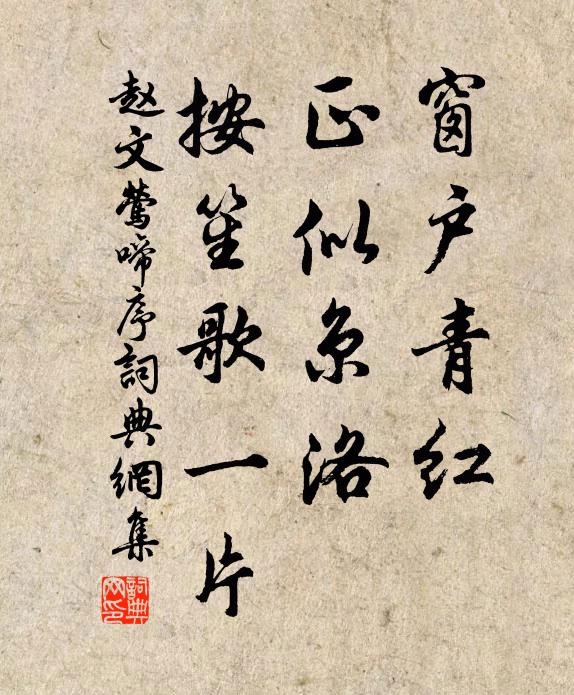 窗户青红
正似京洛
按笙歌一片
赵文莺啼序詞典網集
詞典
网印